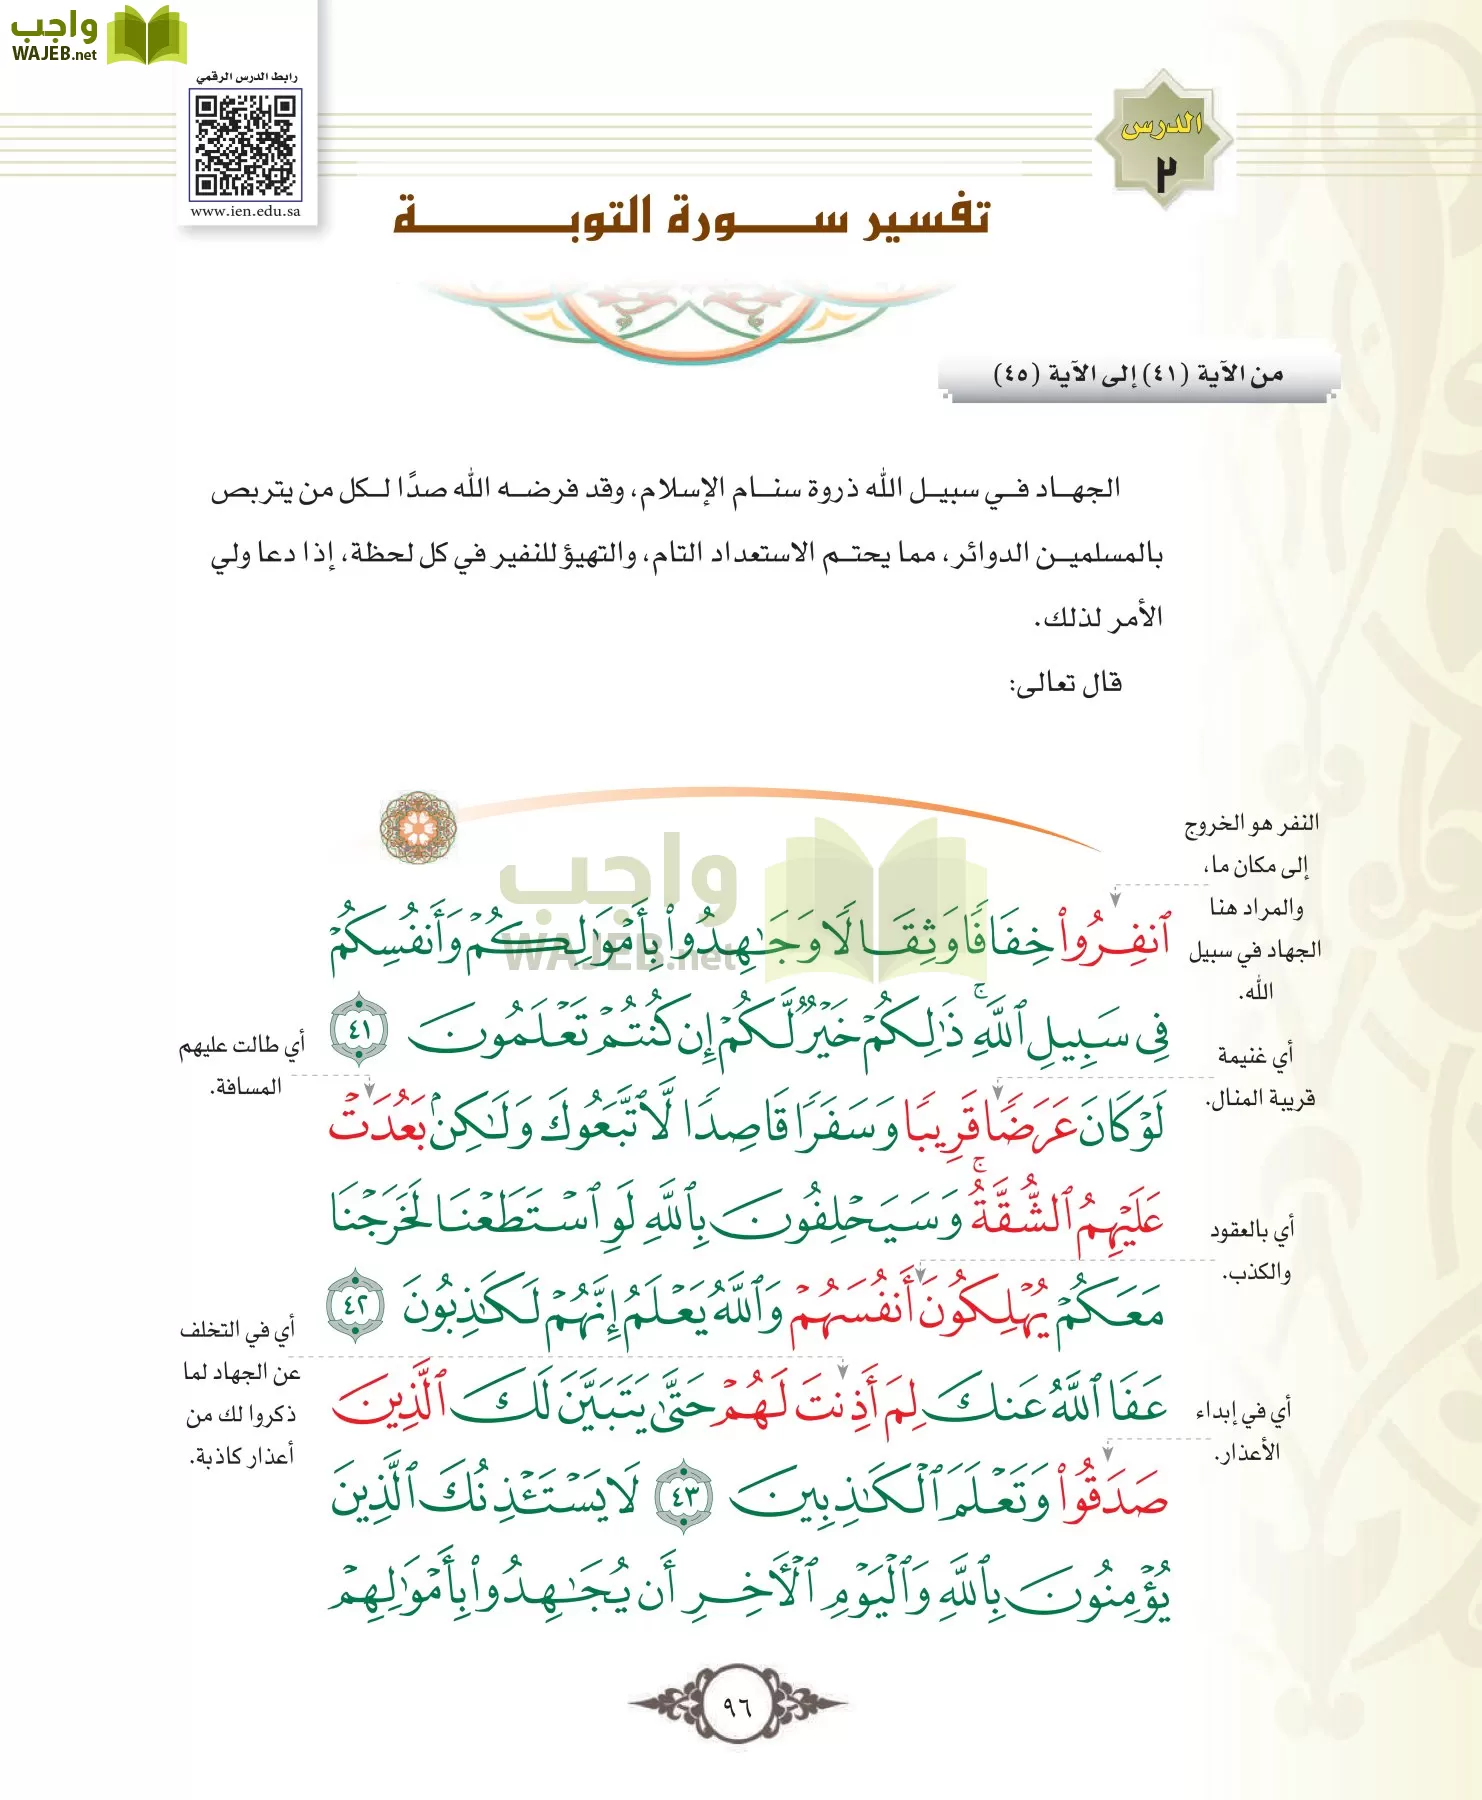 واجب
WAJEB.net
رابط الدرس الرقمي
www.ien.edu.sa
الدرس
٢
تفسير سورة التوبة
من الآية (٤١) إلى الآية (٤٥)
الجهاد في سبيل الله ذروة سنام الإسلام، وقد فرضه الله صدًا لكل من يتربص
بالمسلمين الدوائر، مما يحتم الاستعداد التام، والتهيؤ للنفير في كل لحظة، إذا دعا ولي
الأمر لذلك.
قال تعالى:
النفر هو الخروج
إلى مكان ما،
والمراد هنا
الجهاد في سبيل
الله.
واجب
WAJEB.net
ٱنفِرُوا۟ خِفَافًا وَثِقَالًا وَجَـٰهِدُوا۟ بِأَمْوَٰلِكُمْ وَأَنفُسِكُمْ
فِى سَبِيلِ ٱللَّهِ ۚ ذَٰلِكُمْ خَيْرٌ لَّكُمْ إِن كُنتُمْ تَعْلَمُونَ ٤١
أي طالت عليهم
المسافة.
أي غنيمة
قريبة المنال.
لَوْ كَانَ عَرَضًا قَرِيبًا وَسَفَرًا قَاصِدًا لَّٱتَّبَعُوكَ وَلَـٰكِنۢ بَعُدَتْ
عَلَيْهِمُ ٱلشُّقَّةُ ۚ وَسَيَحْلِفُونَ بِٱللَّهِ لَوِ ٱسْتَطَعْنَا لَخَرَجْنَا
أي بالعقود
والكذب.
مَعَكُمْ يُهْلِكُونَ أَنفُسَهُمْ وَٱللَّهُ يَعْلَمُ إِنَّهُمْ لَكَـٰذِبُونَ ٤٢
أي في التخلف
عن الجهاد لما
ذكروا لك من
أعذار كاذبة.
عَفَا ٱللَّهُ عَنكَ لِمَ أَذِنتَ لَهُمْ حَتَّىٰ يَتَبَيَّنَ لَكَ ٱلَّذِينَ
أي في إبداء
الأعذار.
صَدَقُوا۟ وَتَعْلَمَ ٱلْكَـٰذِبِينَ ٤٣ لَا يَسْتَـْٔذِنُكَ ٱلَّذِينَ
يُؤْمِنُونَ بِٱللَّهِ وَٱلْيَوْمِ ٱلْـَٔاخِرِ أَن يُجَـٰهِدُوا۟ بِأَمْوَٰلِهِمْ
٩٦